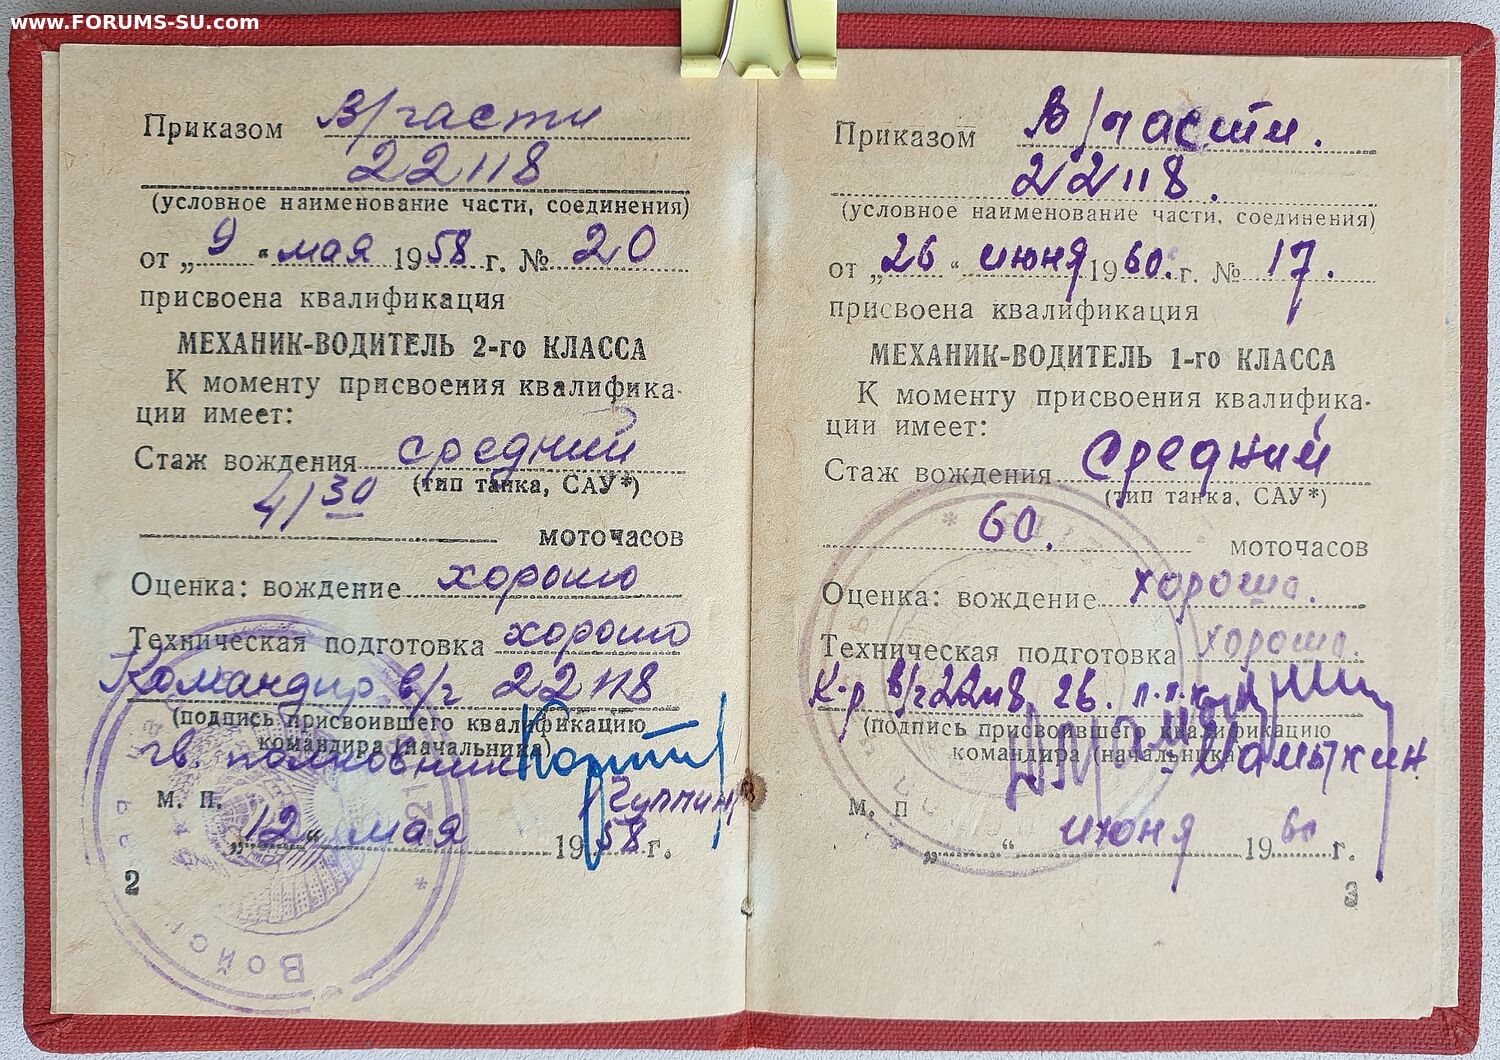 www.FORUMS-SU.com
Приказом В/части
22118
(условное наименование части, соединения)
от „9“ мая 1958 г. № 20
присвоена квалификация
МЕХАНИК-ВОДИТЕЛЬ 2-го КЛАССА
К моменту присвоения квалифика-
ции имеет:
Стаж вождения средний
(тип танка, САУ*)
41 30
моточасов
Оценка: вождение хорошо
Техническая подготовка хорошо
Командир в/ч 22118
(подпись присвоившего квалификацию
командира (начальника)
гв. полковник
м. п.
„12“ мая 1958 г.
2
Войск
Приказом В/части.
22118.
(условное наименование части, соединения)
от „26“ июня 1960. г. № 17.
присвоена квалификация
МЕХАНИК-ВОДИТЕЛЬ 1-го КЛАССА
К моменту присвоения квалифика-
ции имеет:
Стаж вождения Средний
(тип танка, САУ*)
60.
моточасов
Оценка: вождение хорошо.
Техническая подготовка хорошо.
К-р в/ч 22118
(подпись присвоившего квалификацию
командира (начальника)
м. п
„ “ июня 1960 г.
3